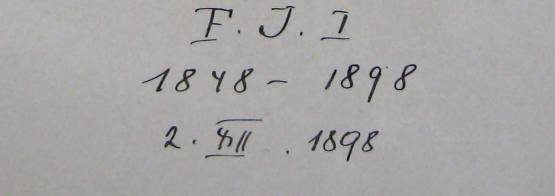 F. J. I
1848 - 1898
2. XII. 1898